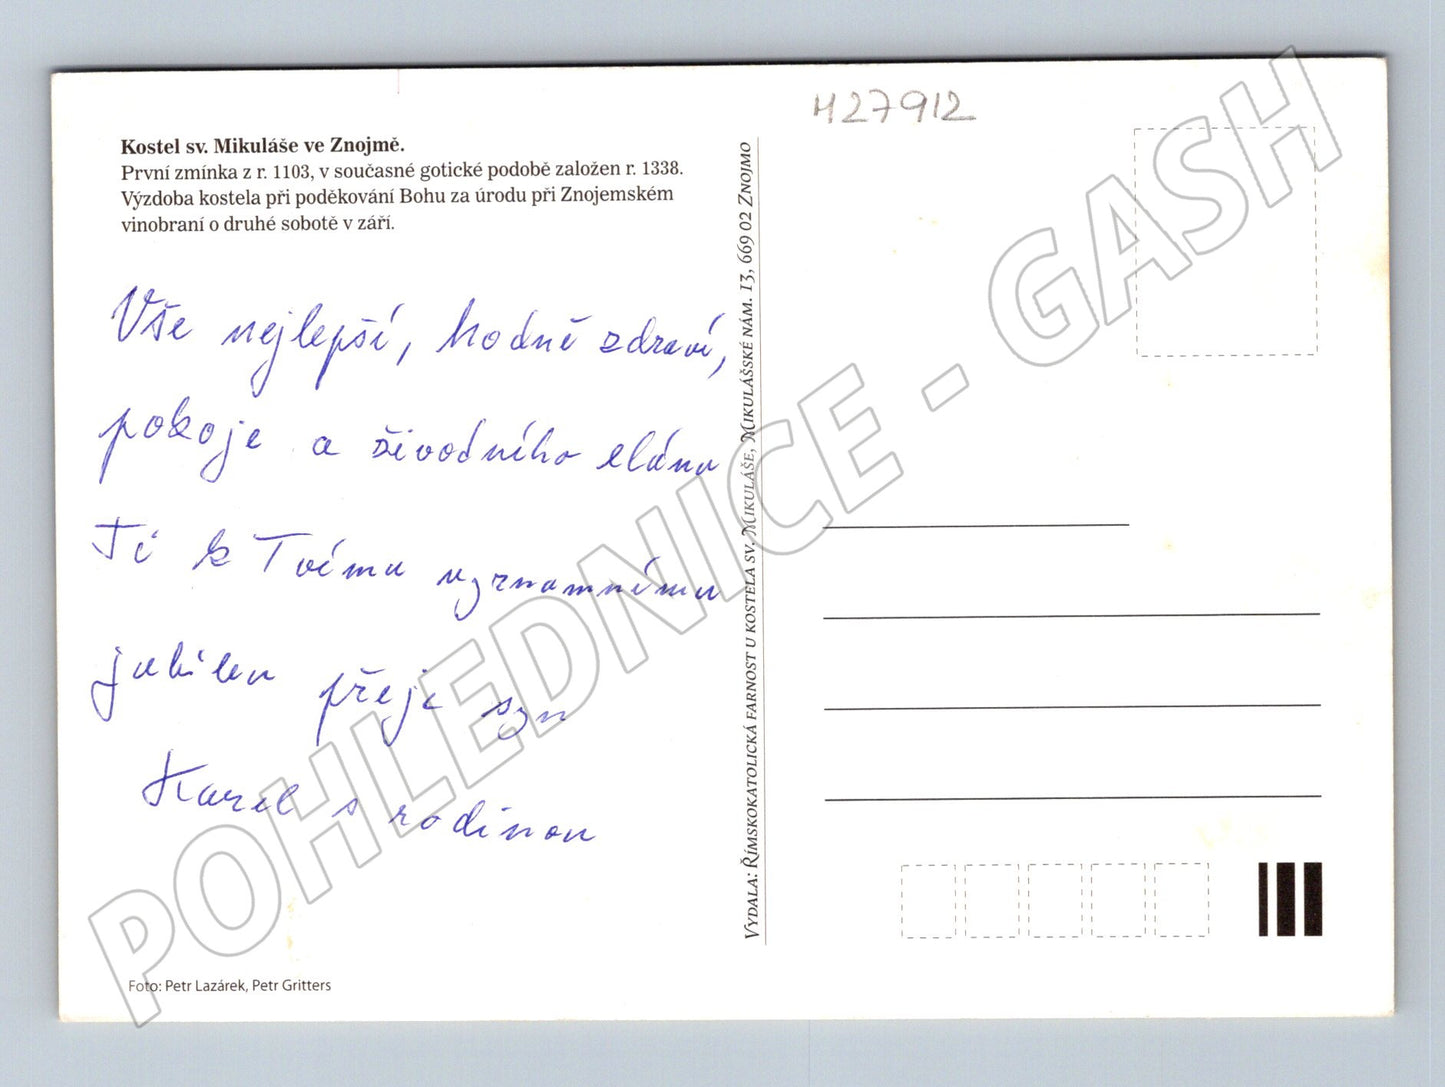 H27912
Kostel sv. Mikuláše ve Znojmě.
První zmínka z r. 1103, v současné gotické podobě založen r. 1338.
Výzdoba kostela při poděkování Bohu za úrodu při Znojemském
vinobraní o druhé sobotě v září.
Vše nejlepší, hodně zdraví,
pokoje a životního elánu
Ti k Tvému významnému
jubileu přeje syn
Karel s rodinou
Foto: Petr Lazárek, Petr Gritters
Vydala: Římskokatolická farnost u kostela sv. Mikuláše, Mikulášské nám. 13, 669 02 Znojmo
POHLEDNICE - GASH